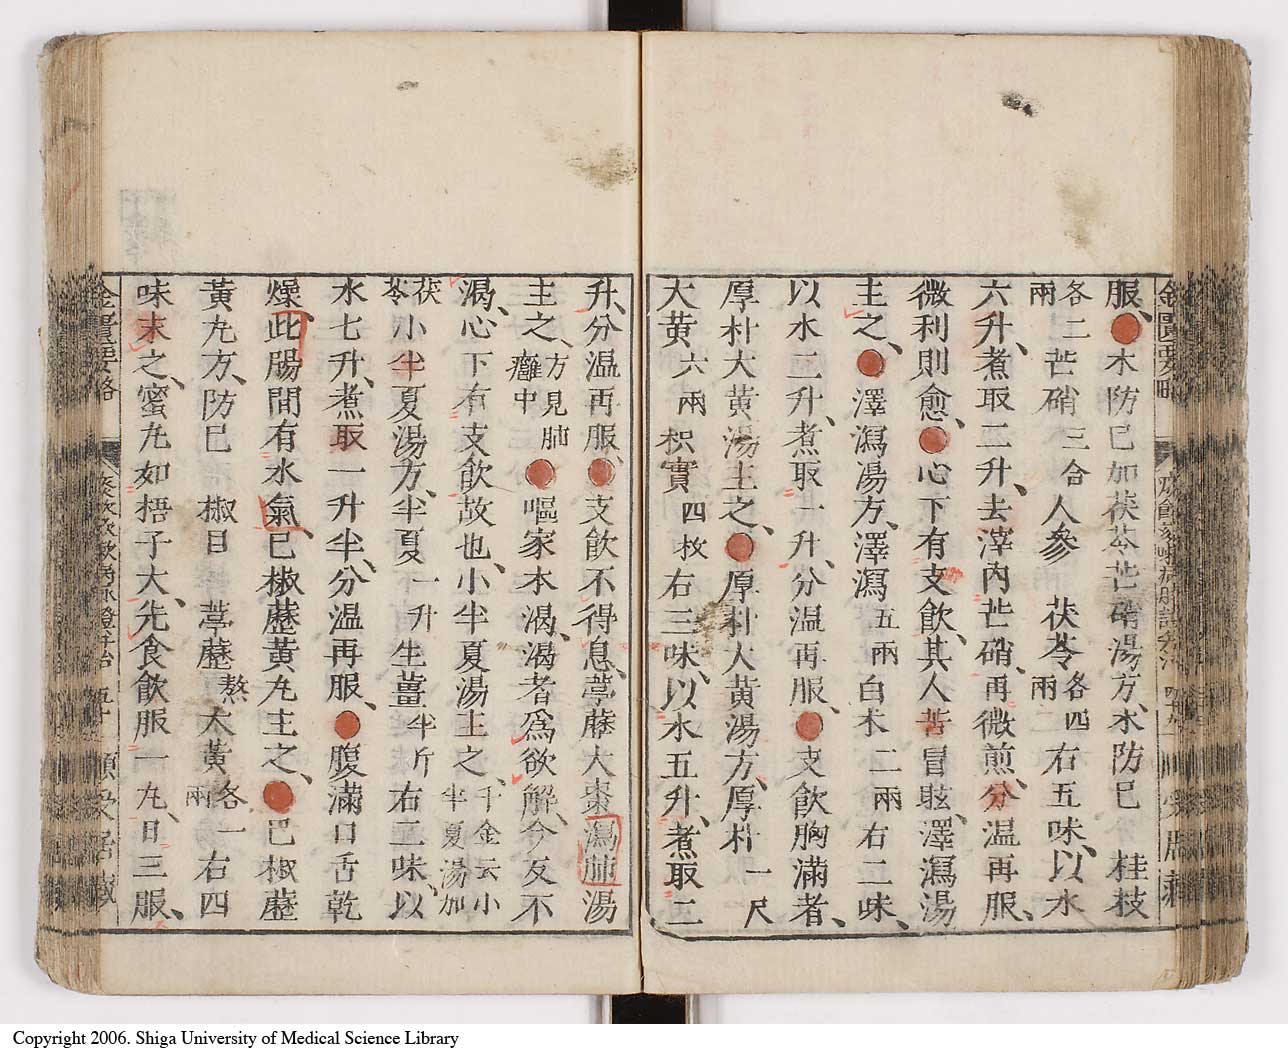 服、●木防已加茯苓芒硝湯方、木防已 桂枝
各二兩 芒硝三合 人參 茯苓各四兩 右五味、以水
六升、煮取二升、去滓內芒硝、再微煎、分温再服、
微利則愈、●心下有支飲、其人苦冒眩、澤瀉湯
主之、●澤瀉湯方、澤瀉五兩 白术二兩 右二味、
以水二升、煮取一升、分温再服、●支飲胸滿者、
厚朴大黃湯主之、●厚朴大黃湯方、厚朴一尺
大黃六兩 枳實四枚 右三味、以水五升、煮取二
升、分温再服、●支飲不得息、葶藶大棗瀉肺湯
主之、方見肺癰中 ●嘔家本渴、渴者爲欲解、今反不
渴、心下有支飲故也、小半夏湯主之、千金云小半夏湯加
茯苓 小半夏湯方、半夏一升 生薑半斤 右二味、以
水七升、煮取一升半、分温再服、●腹滿口舌乾
燥、此腸間有水氣、已椒藶黃丸主之、●已椒藶
黃丸方、防已 椒目 葶藶熬 大黃各一兩 右四
味末之、蜜丸如梧子大、先食飲服一丸、日三服、
金匱要略
Copyright 2006. Shiga University of Medical Science Library